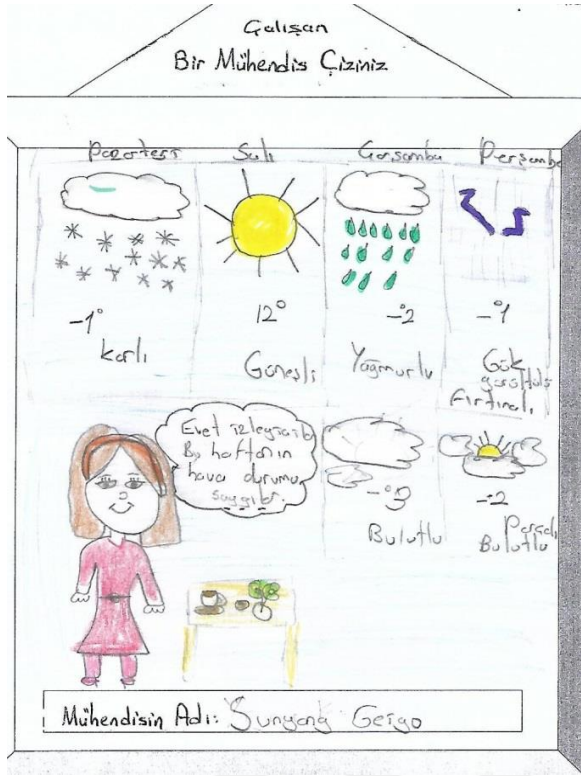 Çalışan
Bir Mühendis Çiziniz
Pazartesi Salı Çarşamba Perşembe
-1° 12° -°2 -°1
karlı Güneşli Yağmurlu Gök
gürültülü
Fırtınalı
Evet izleyicile
Bu haftanın
hava durumu
şaygıbr.
-°3 -°2
Bulutlu Parçalı
Bulutlu
Mühendisin Adı: Sunyong Geigo